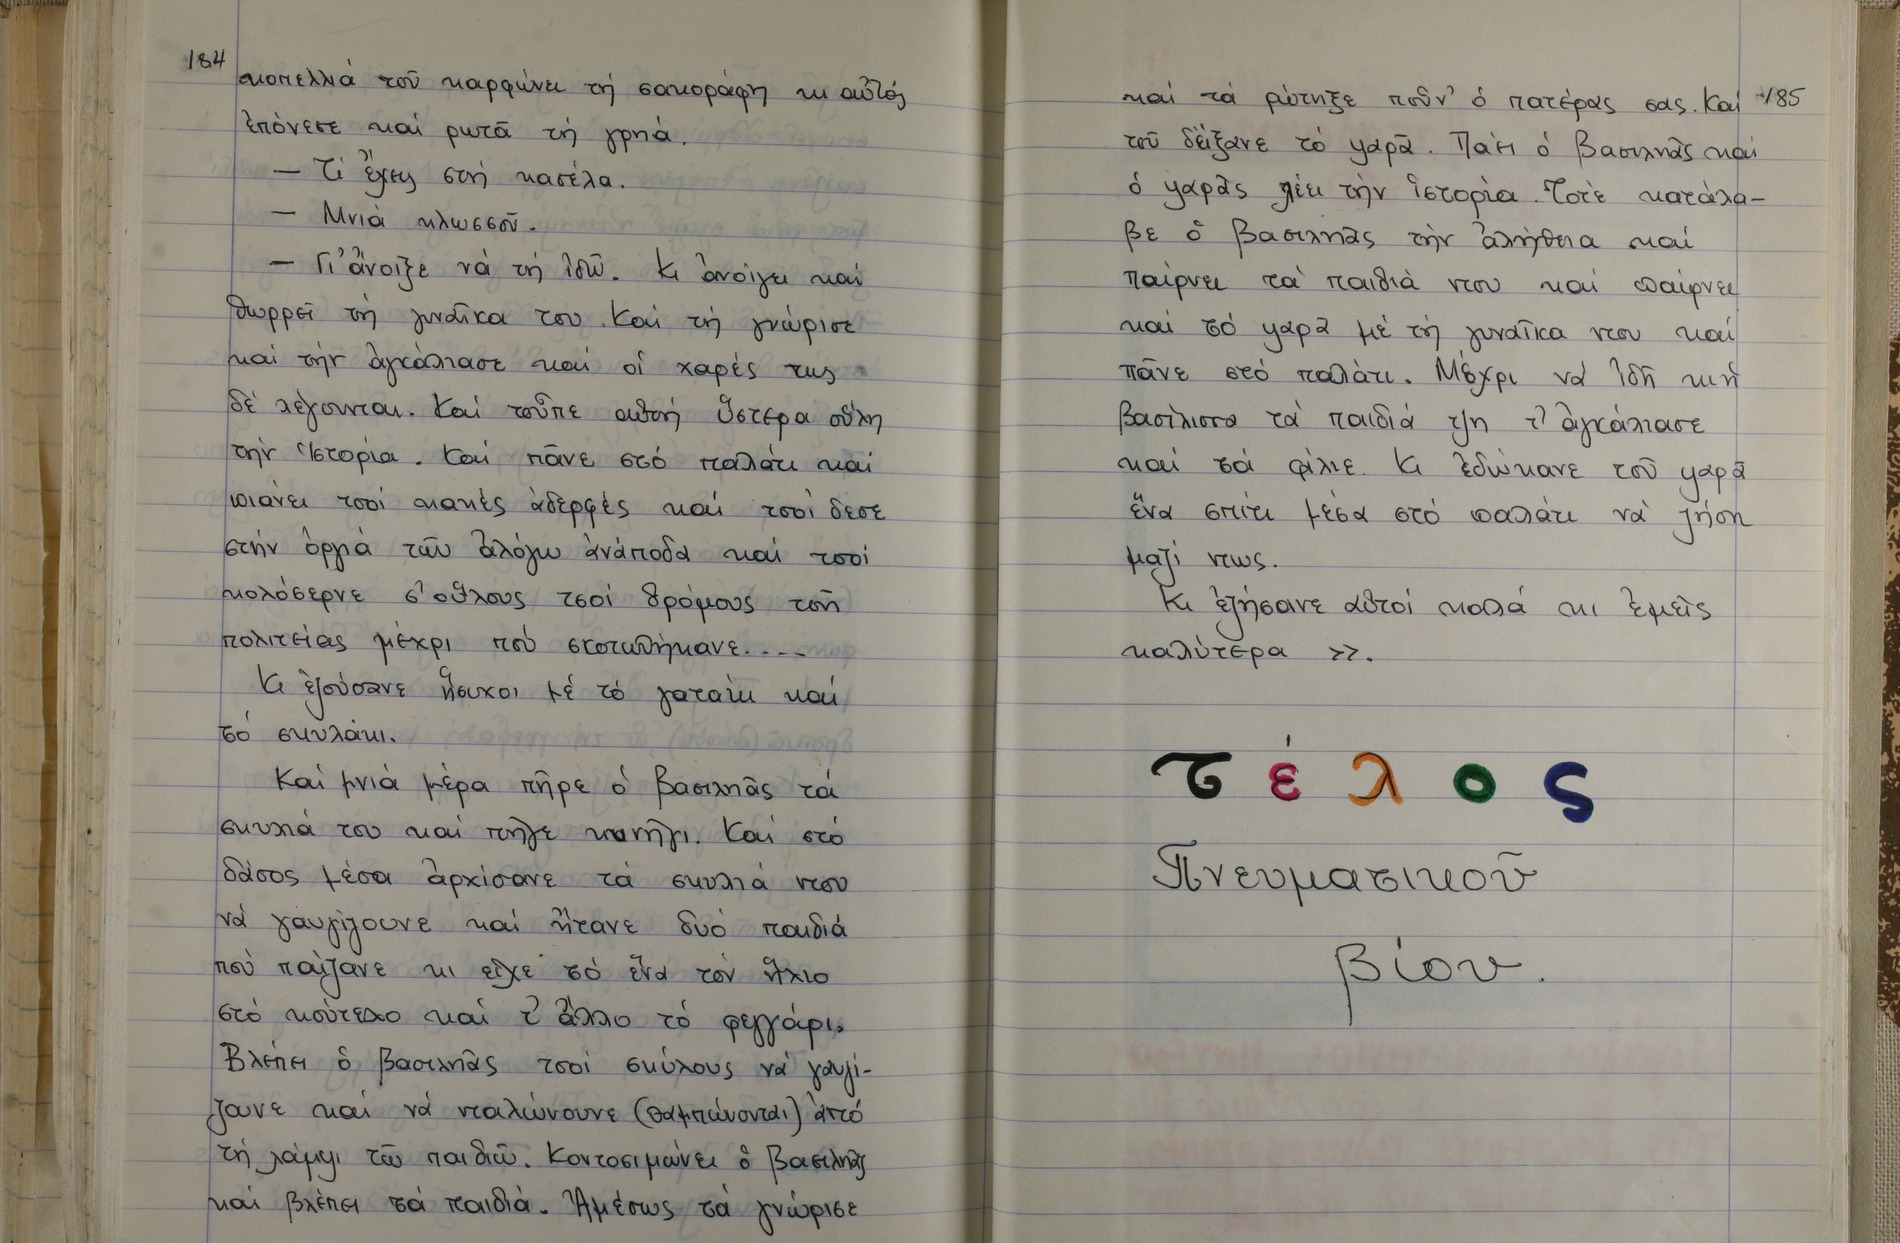 184
κοπελλιά τοῦ καρφώνει τή σακοράφη κι αὐτός
ἐπόνεσε καί ρωτᾶ τή γρηά.
— Τί ἔχεις στή κασέλα.
— Μνιά κλωσσοῦ.
— Γι' ἄνοιξε νά τή ἰδῶ. Κι ἀνοίγει καί
θωρρεῖ τή γυναῖκα του. Καί τή γνώρισε
καί τήν ἀγκάλιασε καί οἱ χαρές τως
δέ λέγονται. Καί τοὖπε αὐτή ὕστερα οὕλη
τήν ἱστορία. Καί πᾶνε στό παλάτι καί
πιάνει τσοί κακές ἀδερφές καί τσοί δεσε
στήν ὀργιά τῶν ἀλόγω ἀνάποδα καί τσοί
κολόσερνε σ' οὕλους τσοί δρόμους τσῆ
πολιτείας μέχρι πού σκοτωθήκανε....
Κι ἐζούσανε ἥσυχοι μέ τό γατάκι καί
τό σκυλάκι.
Καί μνιά μέρα πῆρε ὁ βασιληᾶς τά
σκυλιά του καί πῆγε κυνῆγι. Καί στό
δάσος μέσα ἀρχίσανε τά σκυλιά ντου
νά γαυγίζουνε καί ἤτανε δυό παιδιά
πού παίζανε κι εἶχε τό ἕνα τόν ἥλιο
στό κούτελο καί τ' ἄλλο τό φεγγάρι.
Βλέπει ὁ βασιληᾶς τσοί σκύλους νά γαυγί-
ζουνε καί νά νταλώνουνε (θαμπώνονται) ἀπό
τή λάμψι τῶ παιδιῶ. Κοντοσιμώνει ὁ βασιληᾶς
καί βλέπει τά παιδιά. Ἀμέσως τά γνώρισε
185
καί τά ρώτηξε ποῦν' ὁ πατέρας σας. Καί
τοῦ δείξανε τό ψαρᾶ. Πάει ὁ βασιληᾶς καί
ὁ ψαρᾶς λέει τήν ἱστορία. Τότε κατάλα-
βε ὁ βασιληᾶς τήν ἀλήθεια καί
παίρνει τά παιδιά ντου καί παίρνει
καί τό ψαρᾶ μέ τή γυναῖκα ντου καί
πᾶνε στό παλάτι. Μόχρι νά ἰδῆ κι ἡ
βασίλισσα τά παιδιά τζη τ' ἀγκάλιασε
καί τά φίλιε. Κι ἐδώκανε τοῦ ψαρᾶ
ἕνα σπίτι μέσα στό παλάτι νά ζήση
μαζί ντως.
Κι ἐζήσανε αὐτοί καλά κι ἐμεῖς
καλύτερα ».
τέλος
Πνευματικοῦ
βίου.